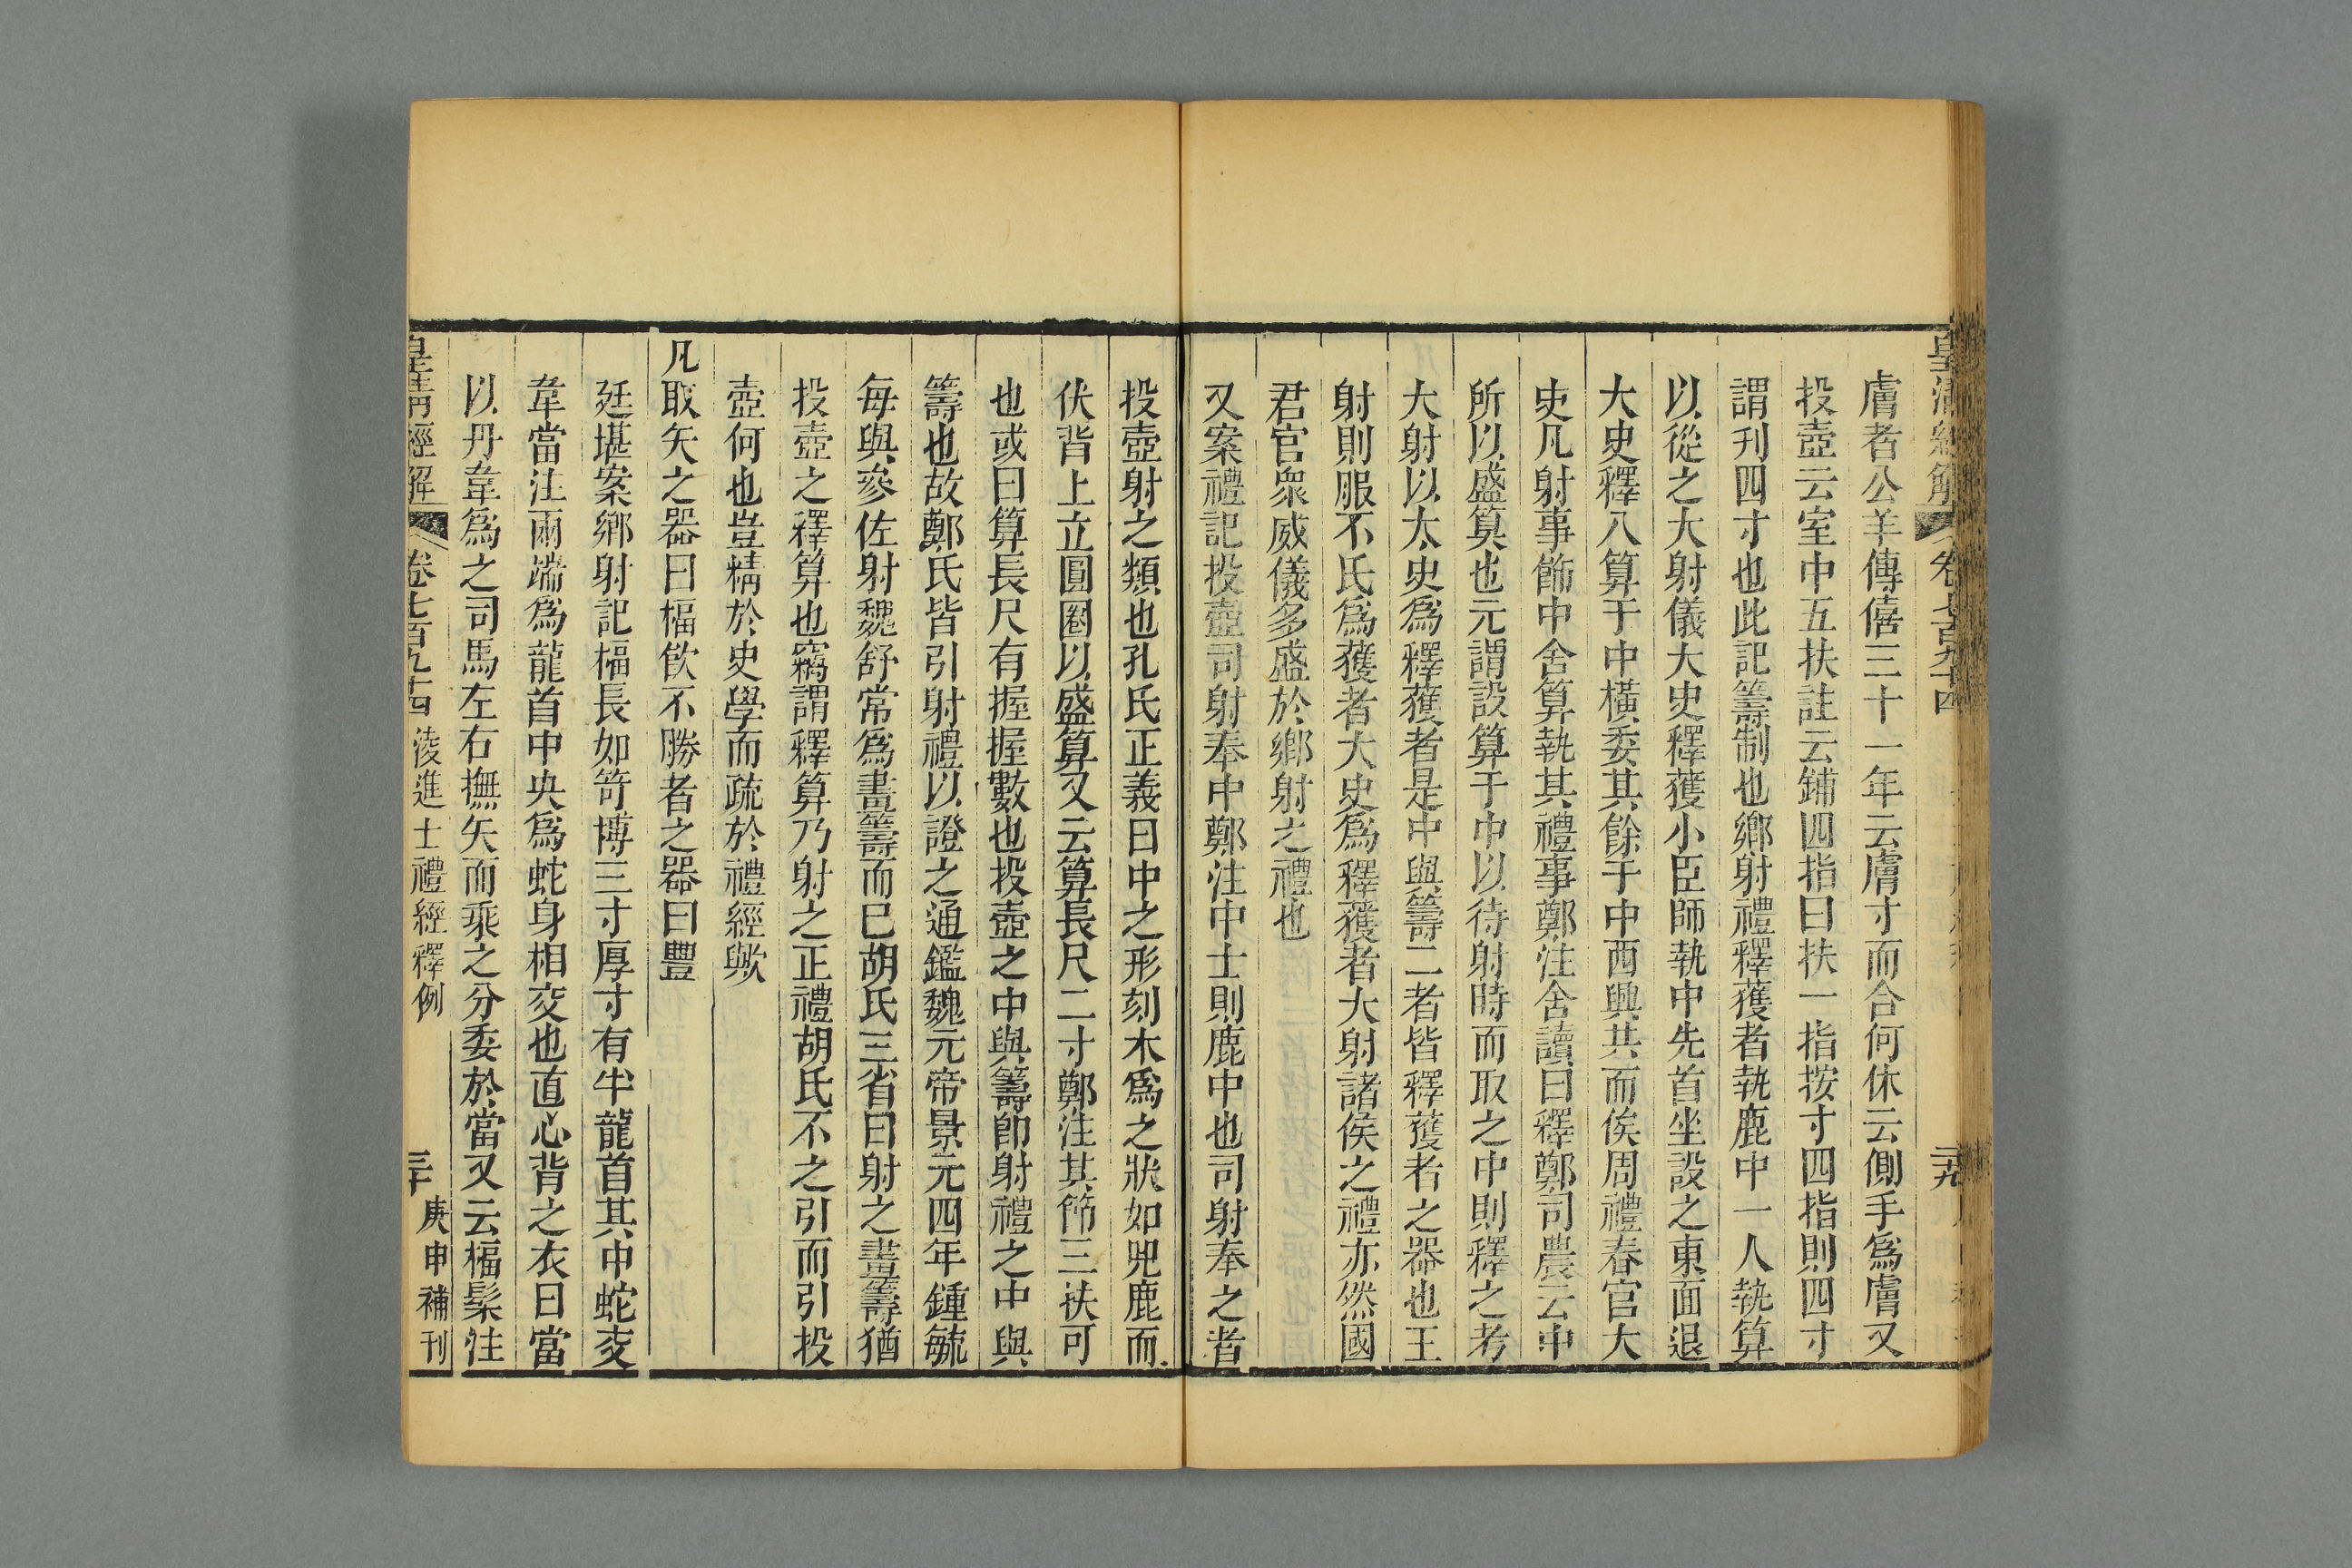 皇清經解 卷七百九十四 二十九
膚者公羊傳僖三十一年云膚寸而合何休云側手爲膚又
投壺云室中五扶註云鋪四指曰扶一指按寸四指則四寸
謂刊四寸也此記籌制也鄉射禮釋獲者執鹿中一人執算
以從之大射儀大史釋獲小臣師執中先首坐設之東面退
大史釋八算于中橫委其餘于中西興共而俟周禮春官大
史凡射事飾中舍算執其禮事鄭注舍讀曰釋鄭司農云中
所以盛筭也元謂設算于中以待射時而取之中則釋之考
大射以太史爲釋獲者是中與籌二者皆釋獲者之器也王
射則服不氏爲獲者大史爲釋獲者大射諸侯之禮亦然國
君官衆威儀多盛於鄉射之禮也
又案禮記投壺司射奉中鄭注中士則鹿中也司射奉之者
投壺射之類也孔氏正義曰中之形刻木爲之狀如兕鹿而
伏背上立圓圈以盛算又云算長尺二寸鄭注其節三扶可
也或曰算長尺有握握數也投壺之中與籌卽射禮之中與
籌也故鄭氏皆引射禮以證之通鑑魏元帝景元四年鍾毓
每與參佐射魏舒常爲畫籌而已胡氏三省曰射之畫籌猶
投壺之釋算也竊謂釋算乃射之正禮胡氏不之引而引投
壺何也豈精於史學而疏於禮經歟
凡取矢之器曰楅飮不勝者之器曰豐
廷堪案鄉射記楅長如笴博三寸厚寸有半龍首其中蛇交
韋當注兩端爲龍首中央爲蛇身相交也直心背之衣曰當
以丹韋爲之司馬左右撫矢而乘之分委於當又云楅髤注
皇淸經解 卷七百九十四 淩進士禮經釋例 三十 庚申補刊